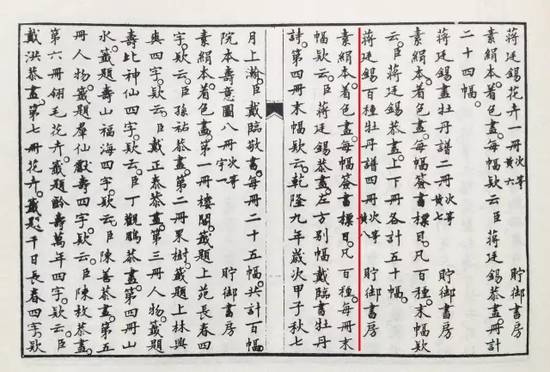 蔣廷錫花卉一冊 次等黃六 貯御書房
素絹本着色畫。每幅款云。臣蔣廷錫恭畫。冊計
二十四幅。
蔣廷錫畫牡丹譜二冊 次等黃七 貯御書房
素絹本着色畫。每幅簽書標目。凡百種。末幅款
云。臣蔣廷錫恭畫。上下冊各計五十幅。
蔣廷錫百種牡丹譜四冊 次等黃八 貯御書房
素絹本着色畫。每幅簽書標目。凡百種。每冊末
幅款云。臣蔣廷錫恭畫。左方別幅戴臨書牡丹
詩。第四冊末幅款云。乾隆九年歲次甲子秋七
月上澣。臣戴臨敬書。每冊二十五幅。共計百幅。
院本壽意圖八冊 次等宇一 貯御書房
素絹本着色畫。第一冊樓閣。籤題上苑長春四
字。款云。臣孫祜恭畫。第二冊果樹。籤題上林與
與四字。款云。臣戴正泰恭畫。第三冊人物。籤題
壽比神仙四字。款云。臣丁觀鵬恭畫。第四冊山
水。籤題壽山福海四字。款云。臣陳善恭畫。第五
冊人物。籤題羣仙獻壽四字。款云。臣陳枚恭畫。
第六冊翎毛花卉。籤題齡壽萬年四字。款云。臣
戴洪恭畫。第七冊花卉。籤題千日長春四字。款